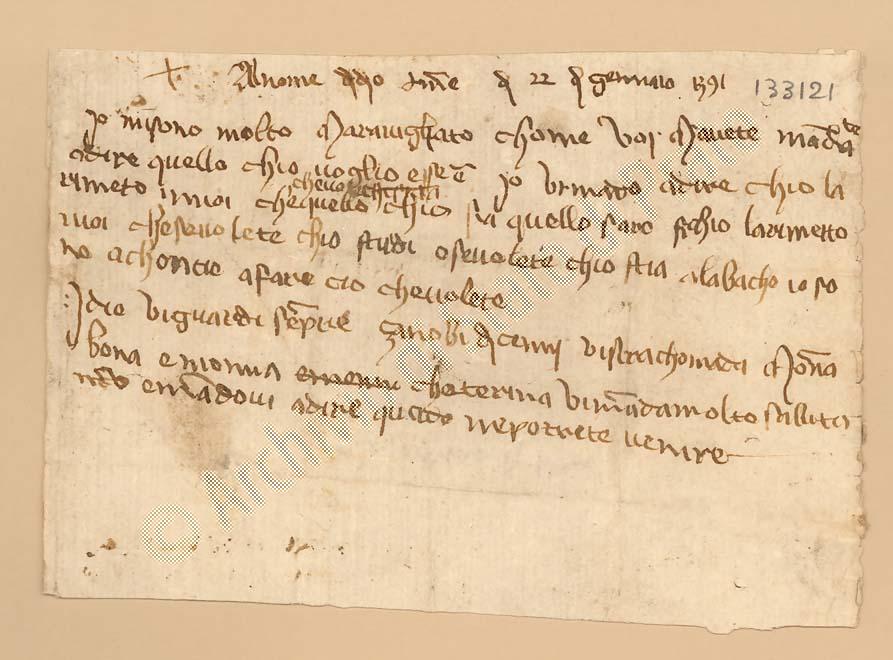 Al nome dio ame d 22 d gennaio 1391
133121
Io misono molto maravigliato chome voi mavete mandato
adire quello chio voglio essere Io vi mado adire chio la
chevoi
rimeto i nuoi che quello chio sia quello saro sichio larimetto
nuoi chesevolete chio studi osevolete chio stia alabacho io so
no achoncio afare cio chevolete
Idio viguardi sepre zanobi di cenni visirachomada monna
bona e monna chaterina vimadamolto salluta
e madovi adire quado nepotrete venire
© Archivio di Stato